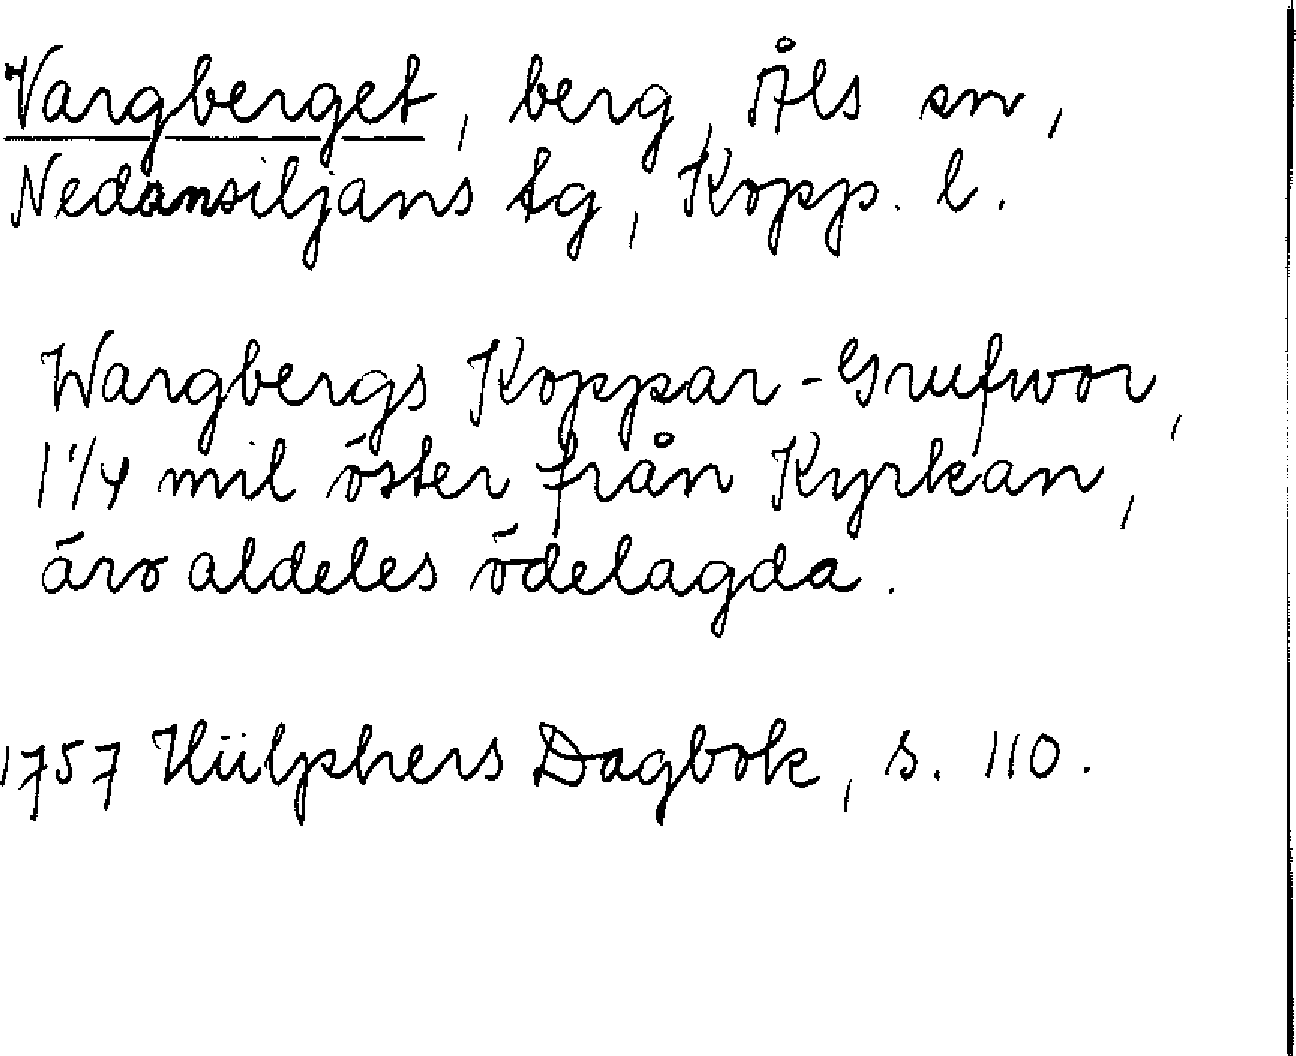 Vargberget, berg, Åls sn,
Nedansiljans tg, Kopp. l.
Wargbergs Koppar-Grufwor,
1 1/4 mil öster från Kyrkan,
äro aldeles ödelagda.
1757 Hülphers Dagbok, s. 110.